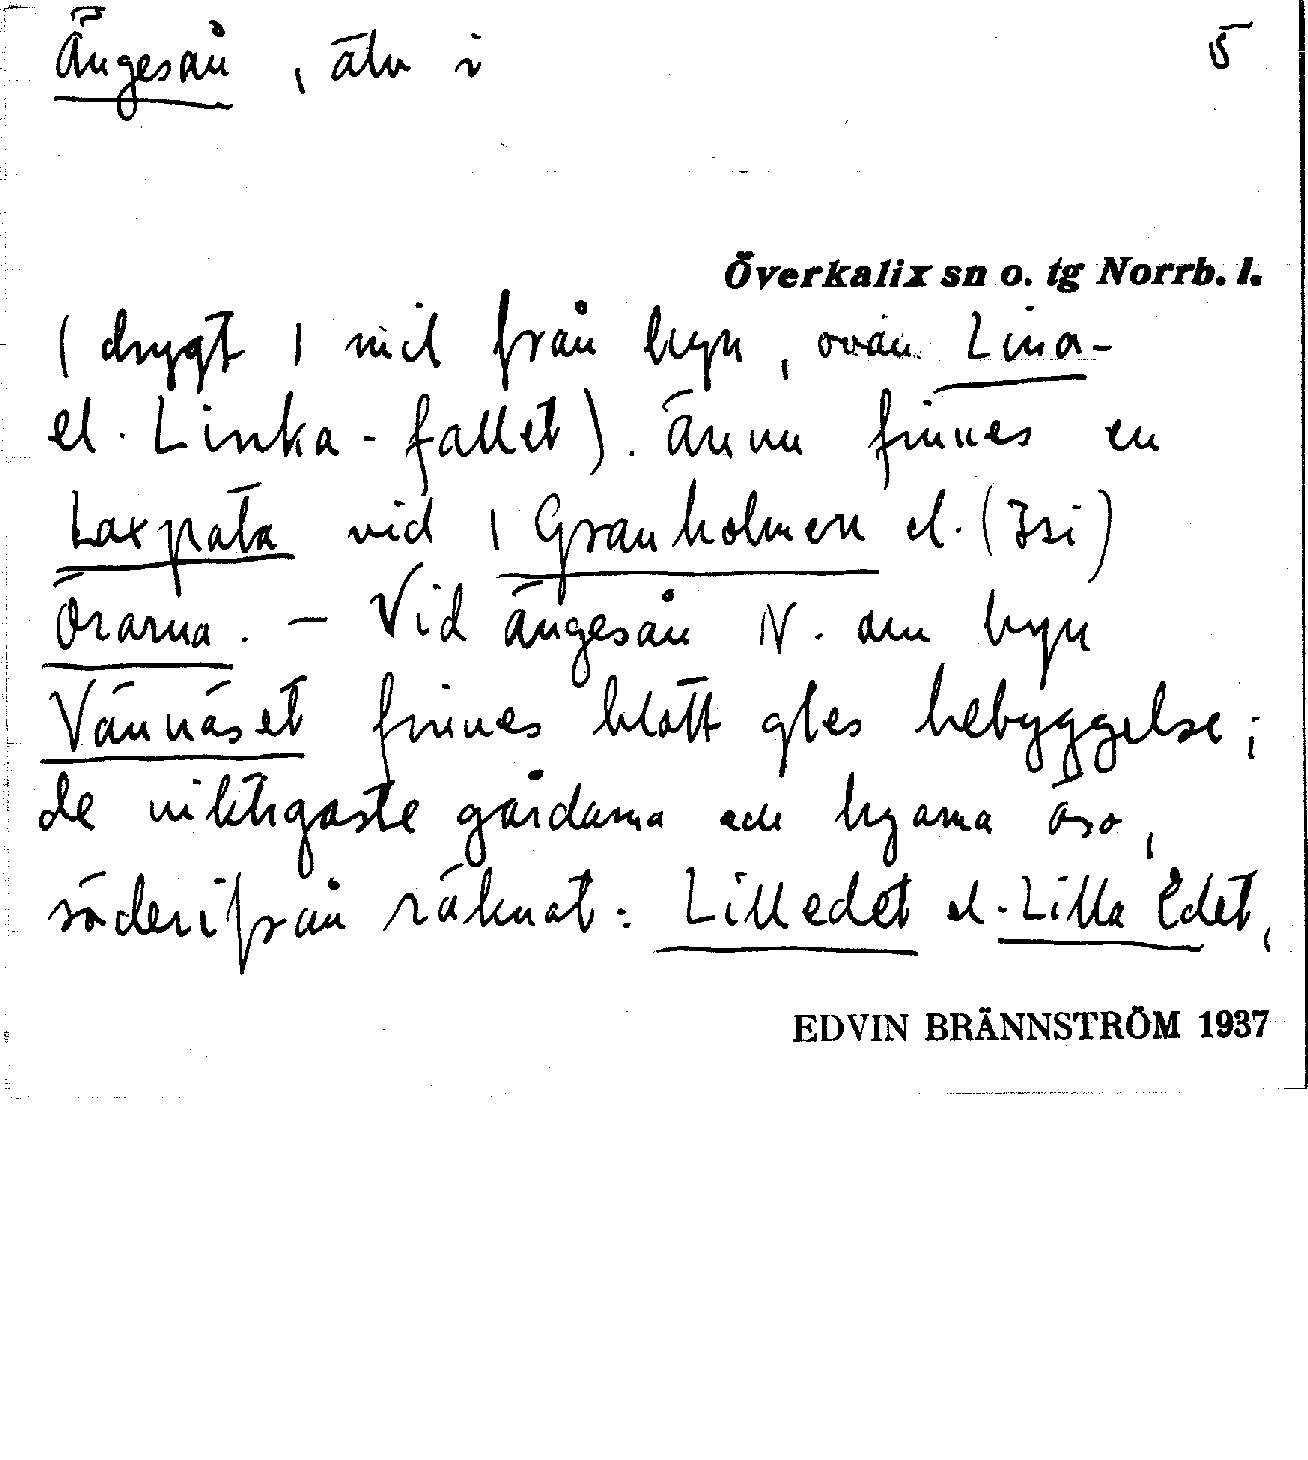 Ängesån, älv i 5
Överkalix sn o. tg Norrb. l.
(drygt 1 mil från byn, ovan Lina-
el. Linka-fallet). Ännu finnes en
Laxpata vid Granholmen el.
Örarna. — Vid Ängesån N. om byn
Vännäset finnes blott gles bebyggelse;
de viktigaste gårdarna och byarna äro,
söderifrån räknat: Lilledet el. Lilla Edet,
EDVIN BRÄNNSTRÖM 1937